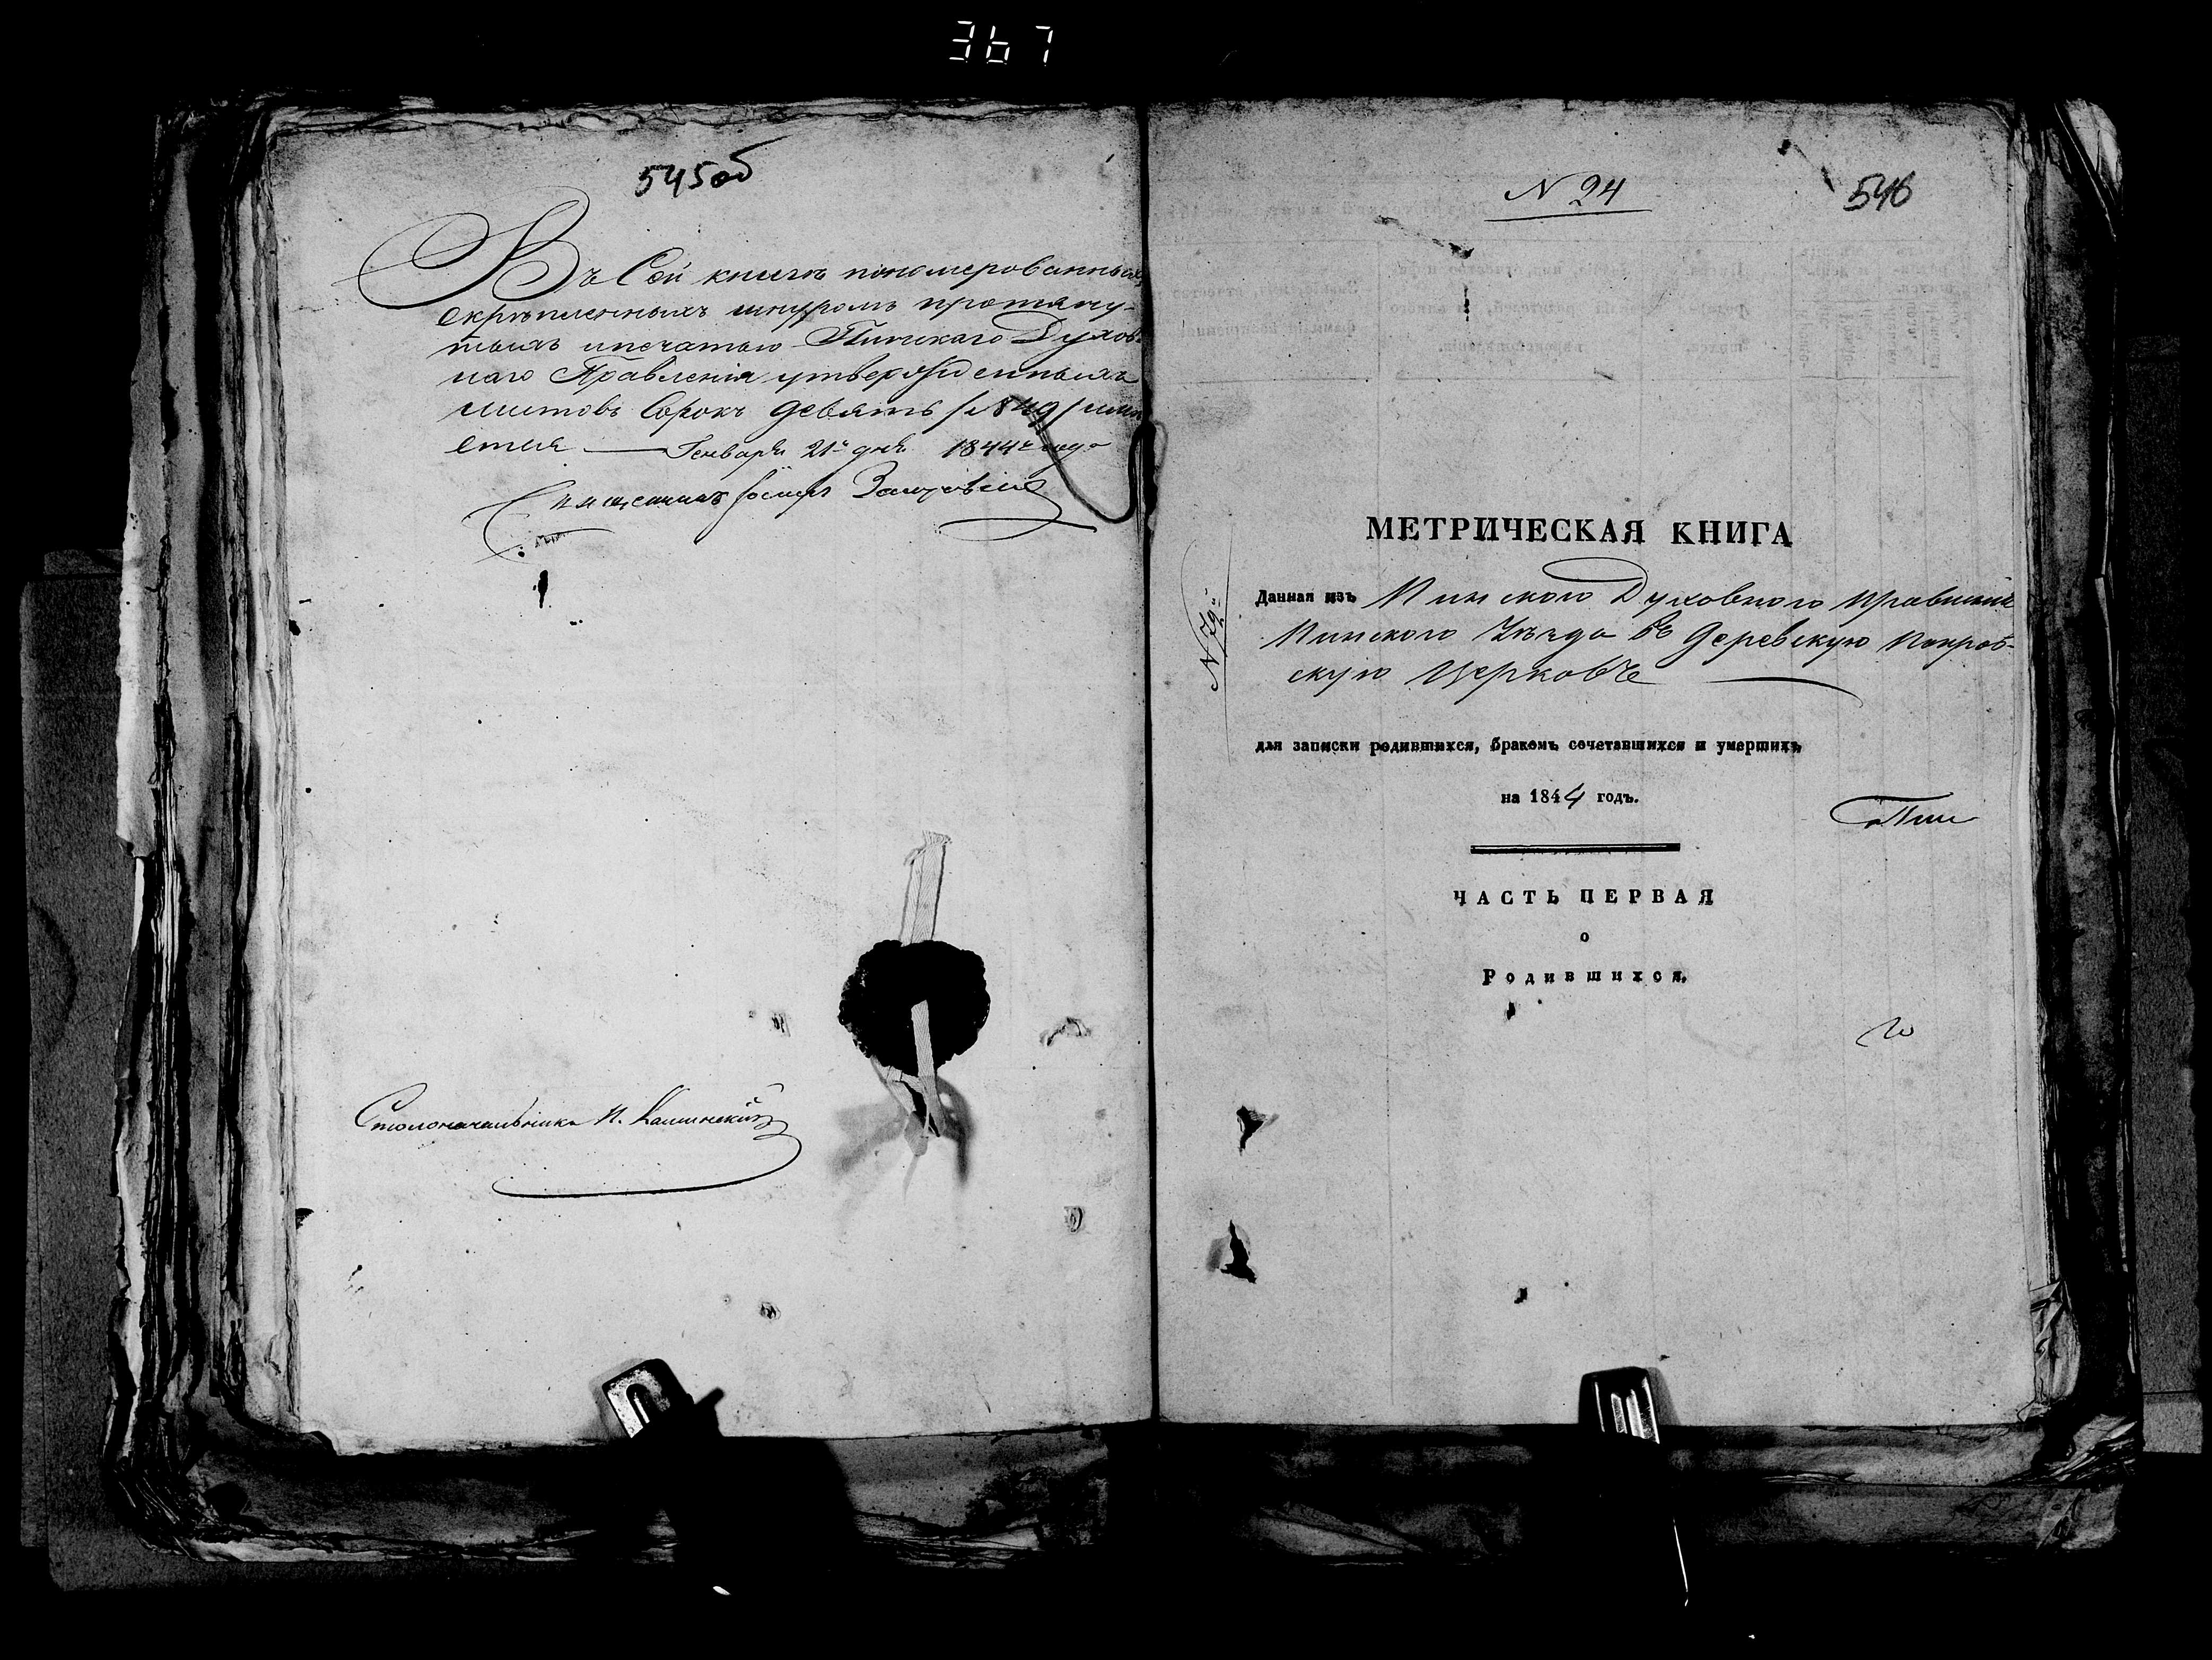 367
545об
Въ Сей книгѣ пономерованныхъ
скрѣпленныхъ шнуромъ протяну-
тыхъ и печатью Пинскаго Духов-
наго Правленія утвержденныхъ
листовъ Сорокъ девять /№ 49/ име
ется — Генваря 21го дня 1844го года
Священникъ Іосифъ
Столоначальникъ И. Калинскій
N 24
546
МЕТРИЧЕСКАЯ КНИГА
Данная изъ Пинского Духовного Правленія
Пинского Уѣзда въ Деревскую Покров-
скую Церковь
N 79й
для записки родившихся, бракомъ сочетавшихся и умершихъ,
на 1844 годъ.
Пин
ЧАСТЬ ПЕРВАЯ
о
Родившихся.